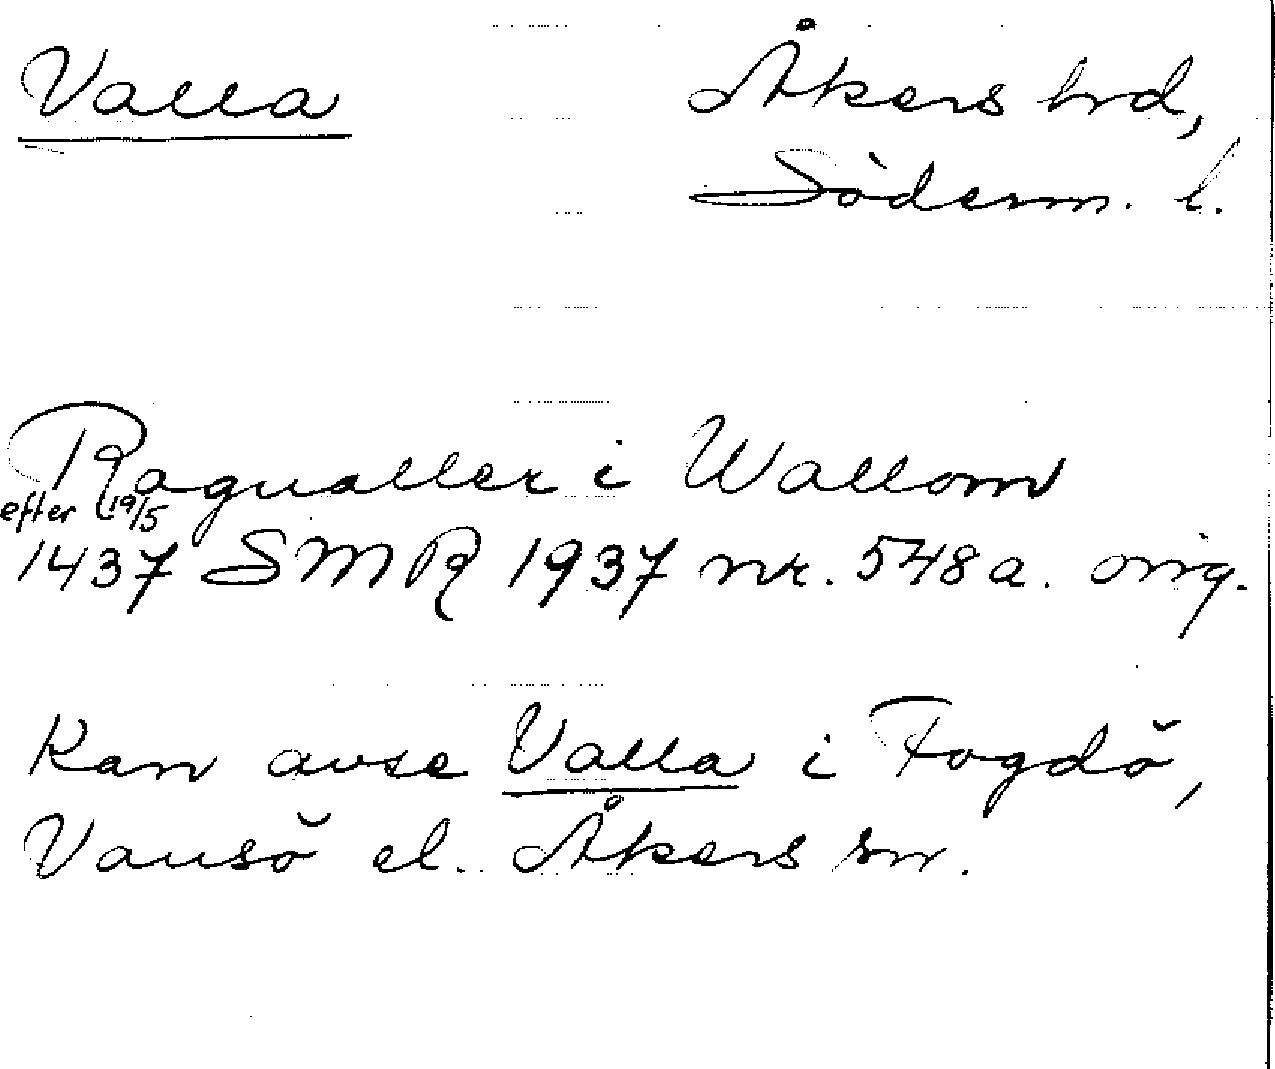 Valla
Åkers hrd,
Söderm. l.
Ragualler i Wallom
efter 19/5
1437 SMR 1937 nr. 548 a. orig.
Kan avse Valla i Fogdö,
Vansö el. Åkers snr.